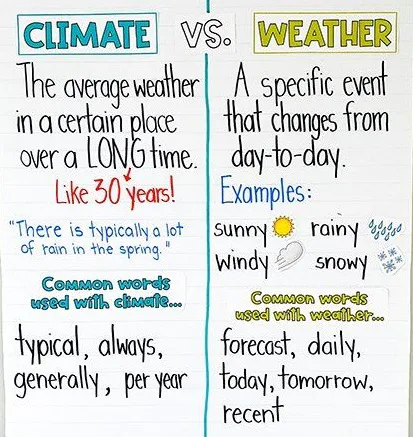 CLIMATE VS. WEATHER
The average weather
in a certain place
over a LONG time.
Like 30 years!
"There is typically a lot
of rain in the spring."
Common words
used with climate...
typical, always,
generally, per year
A specific event
that changes from
day-to-day.
Examples:
sunny rainy
windy snowy
Common words
used with weather...
forecast, daily,
today, tomorrow,
recent